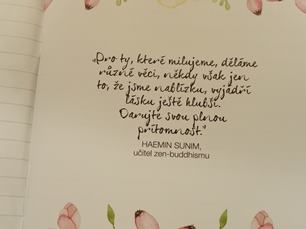 „Pro ty, které milujeme, děláme
různé věci, někdy však jen
to, že jsme nablízku, vyjádří
lásku ještě hlubší.
Darujte svou plnou
přítomnost."
HAEMIN SUNIM,
učitel zen-buddhismu